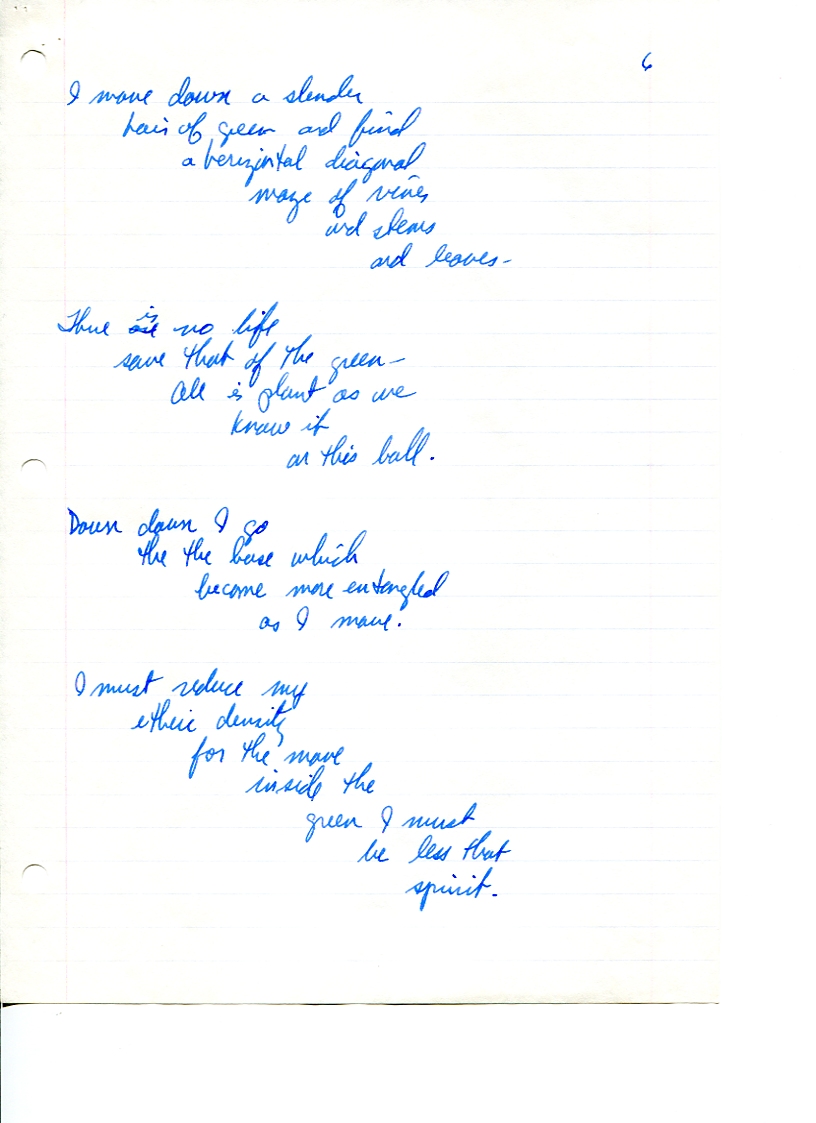 6
I move down a slender
hair of green and find
a horizontal diagonal
maze of vines
and stems
and leaves-
There is no life
save that of the green-
All is plant as we
know it
on this ball.
Down down I go
the the base which
become more entangled
as I move.
I must reduce my
etheric density
for the move
inside the
green I must
be less that
spirit.